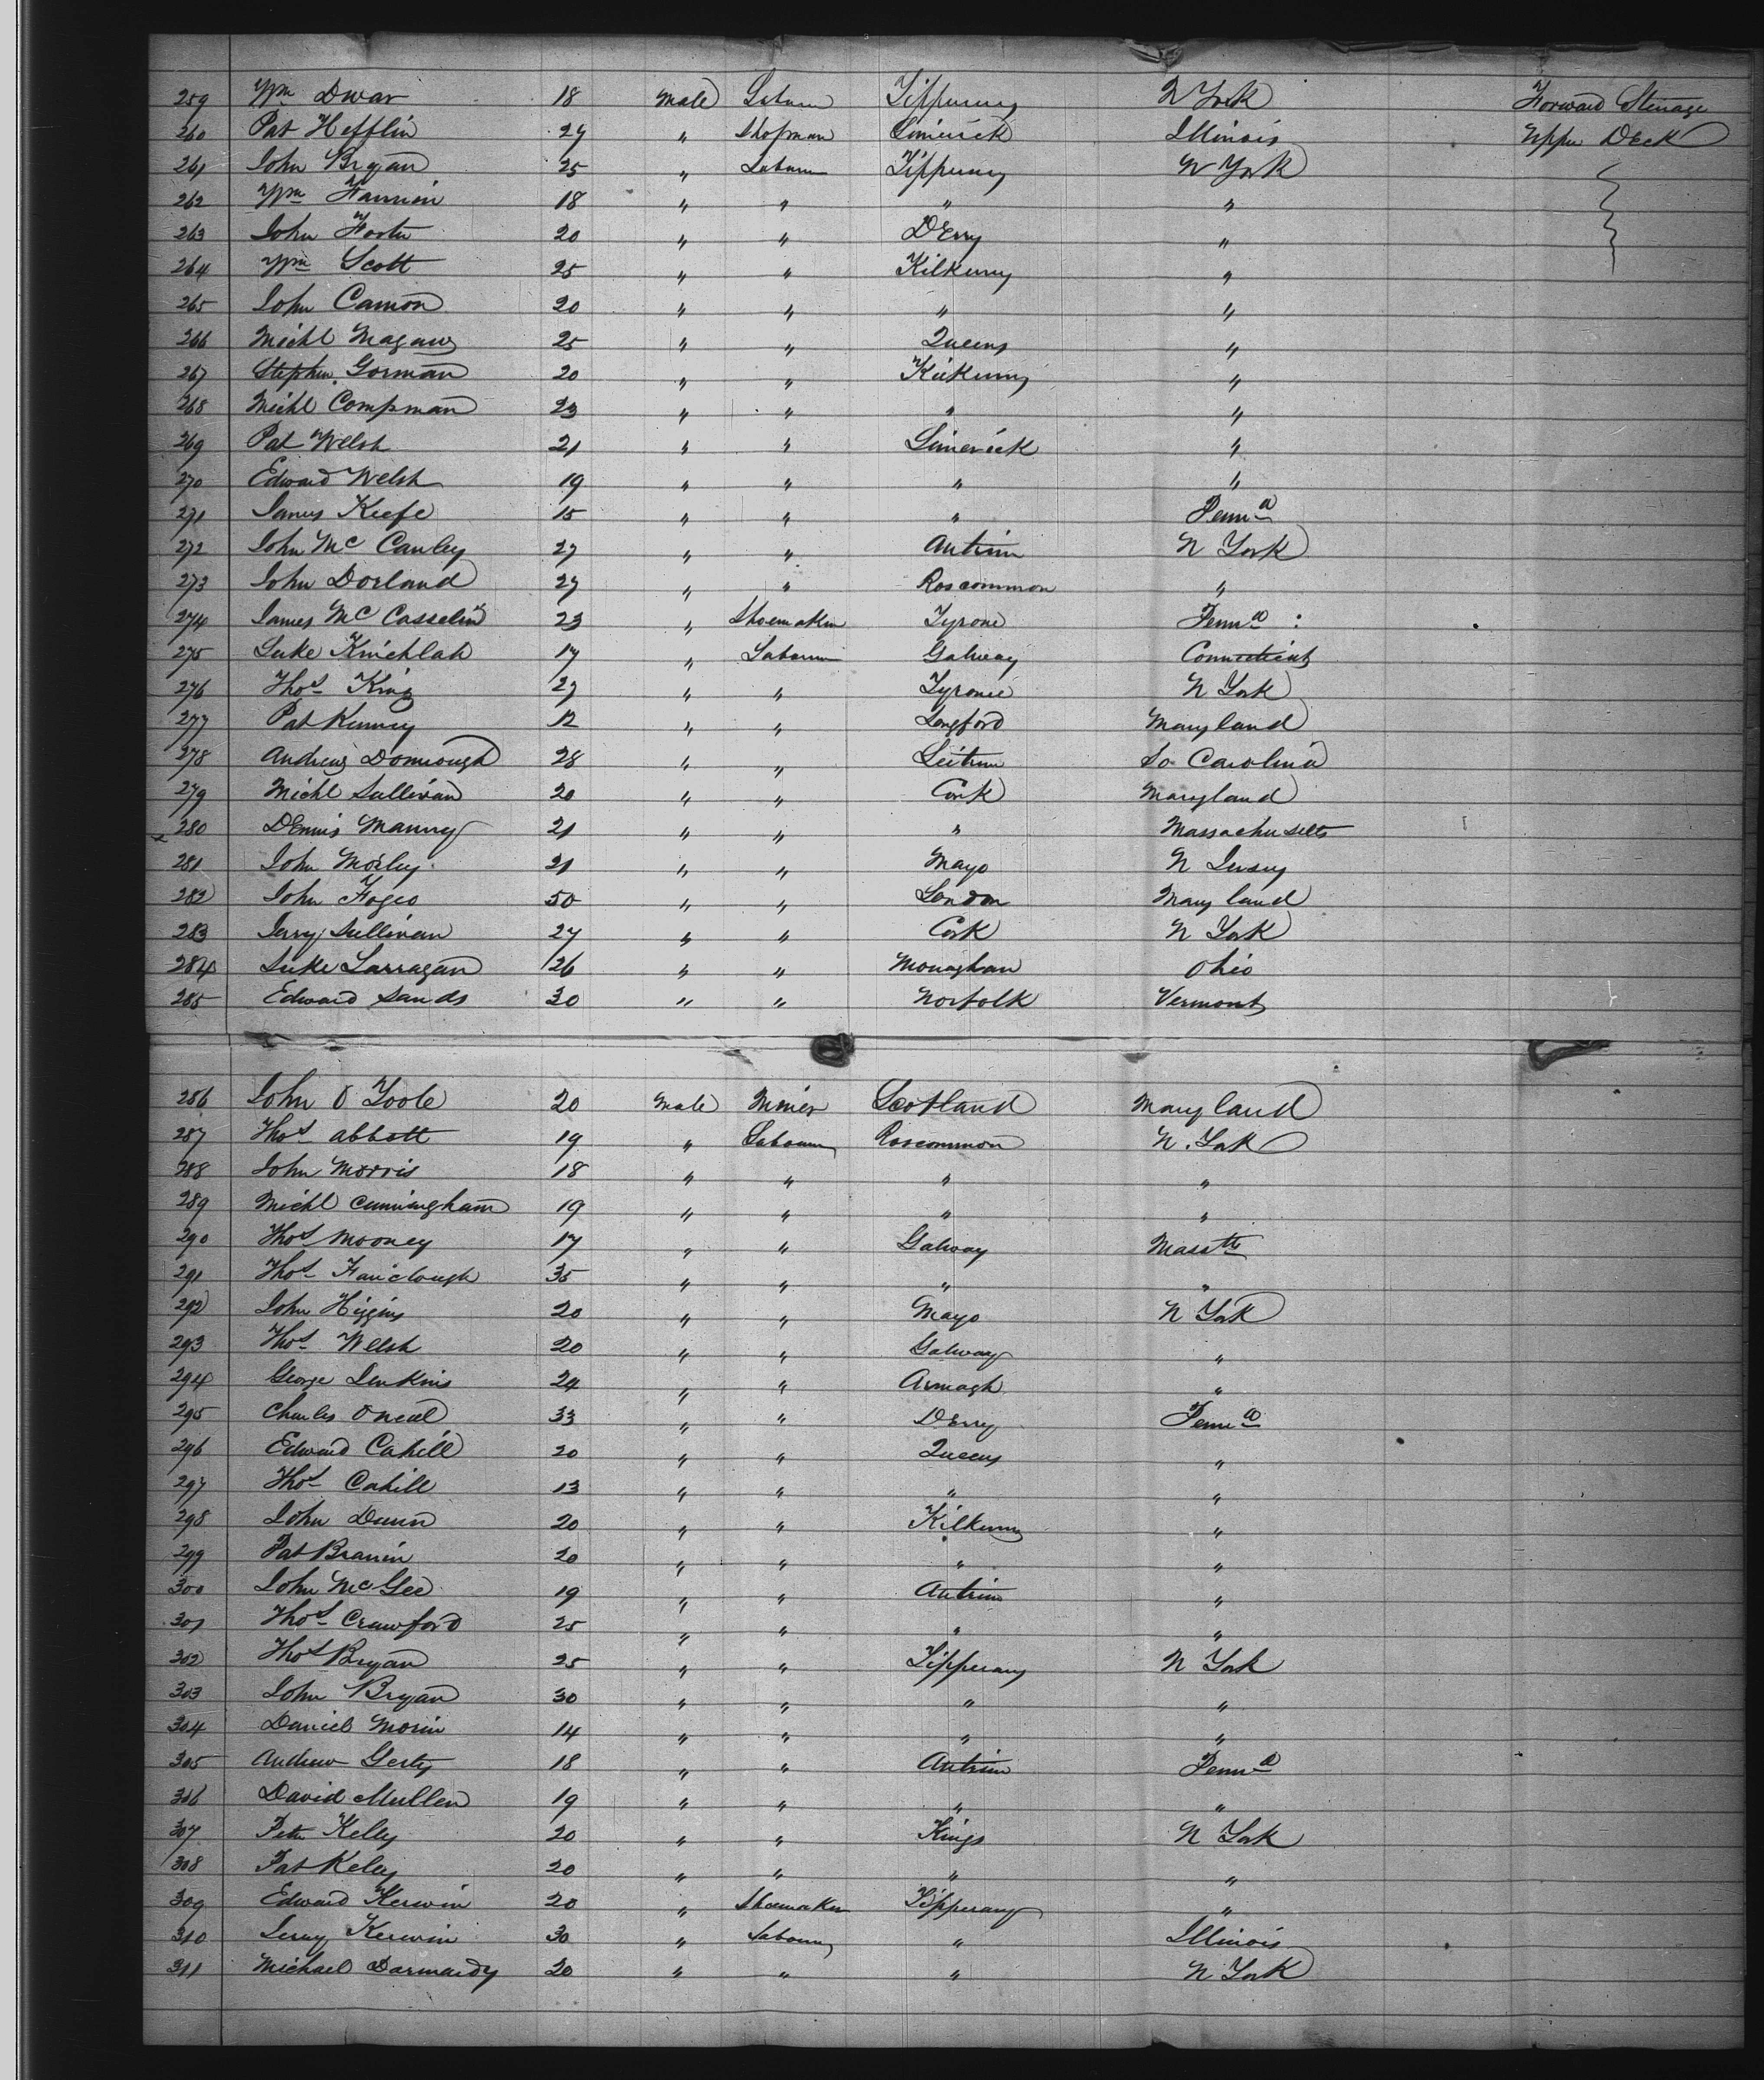 259 Wm Dwar 18 Male Labourer Tipperary N York Forward Steerage
260 Pat Hefflin 24 " Shopman Limerick Illinois Upper Deck
261 John Bryan 25 " Labourer Tipperary N York
262 Wm Fannin 18 " " " "
263 John Foster 20 " " Derry "
264 Wm Scott 25 " " Kilkenny "
265 John Camon 20 " " " "
266 Michl Magaw 25 " " Queens "
267 Stephen Gorman 20 " " Kilkenny "
268 Michl Compman 23 " " " "
269 Pat Welsh 21 " " Limerick "
270 Edward Welsh 19 " " " "
271 James Keefe 15 " " " Penna
272 John Mc Cauley 27 " " Antrim N York
273 John Dorland 27 " " Roscommon "
274 James Mc Casselin 23 " Shoemaker Tyrone Penna :
275 Luke Kinchlah 17 " Labourer Galway Connecticut
276 Thos King 27 " " Tyrone N York
277 Pat Kenney 12 " " Longford Maryland
278 Andrew Donnough 28 " " Leitrim So Carolina
279 Michl Sullivan 20 " " Cork Maryland
280 Dennis Manny 21 " " " Massachusetts
281 John Morley 21 " " Mayo N Jersey
282 John Fogeo 50 " " London Maryland
283 Jerry Sullivan 27 " " Cork N York
284 Luke Larragan 26 " " Monaghan Ohio
285 Edward Sands 30 " " Norfolk Vermont
286 John O Toole 20 Male Miner Scotland Maryland
287 Thos Abbott 19 " Labourer Roscommon N. York
288 John Morris 18 " " " "
289 Michl Cunningham 19 " " " "
290 Thos Mooney 17 " " Galway Masstts
291 Thos Fairclough 35 " " " "
292 John Higgins 20 " " Mayo N York
293 Thos Welsh 20 " " Galway "
294 George Jenkins 24 " " Armagh "
295 Charles Oneal 33 " " Derry Penna
296 Edward Cahill 20 " " Queens "
297 Thos Cahill 13 " " " "
298 John Dunn 20 " " Kilkenny "
299 Pat Branin 20 " " " "
300 John McGee 19 " " Antrim "
301 Thos Crawford 25 " " " "
302 Thos Bryan 25 " " Tipperary N York
303 John Bryan 30 " " " "
304 Daniel Morin 14 " " " "
305 Andrew Gerty 18 " " Antrim Penna
306 David Mullen 19 " " " "
307 Peter Kelly 20 " " Kings N York
308 Pat Keley 20 " " " "
309 Edward Kerwin 20 " Shoemaker Tipperary "
310 Jerry Kerwin 30 " Labourer " Illinois
311 Michael Darmardy 20 " " " N York